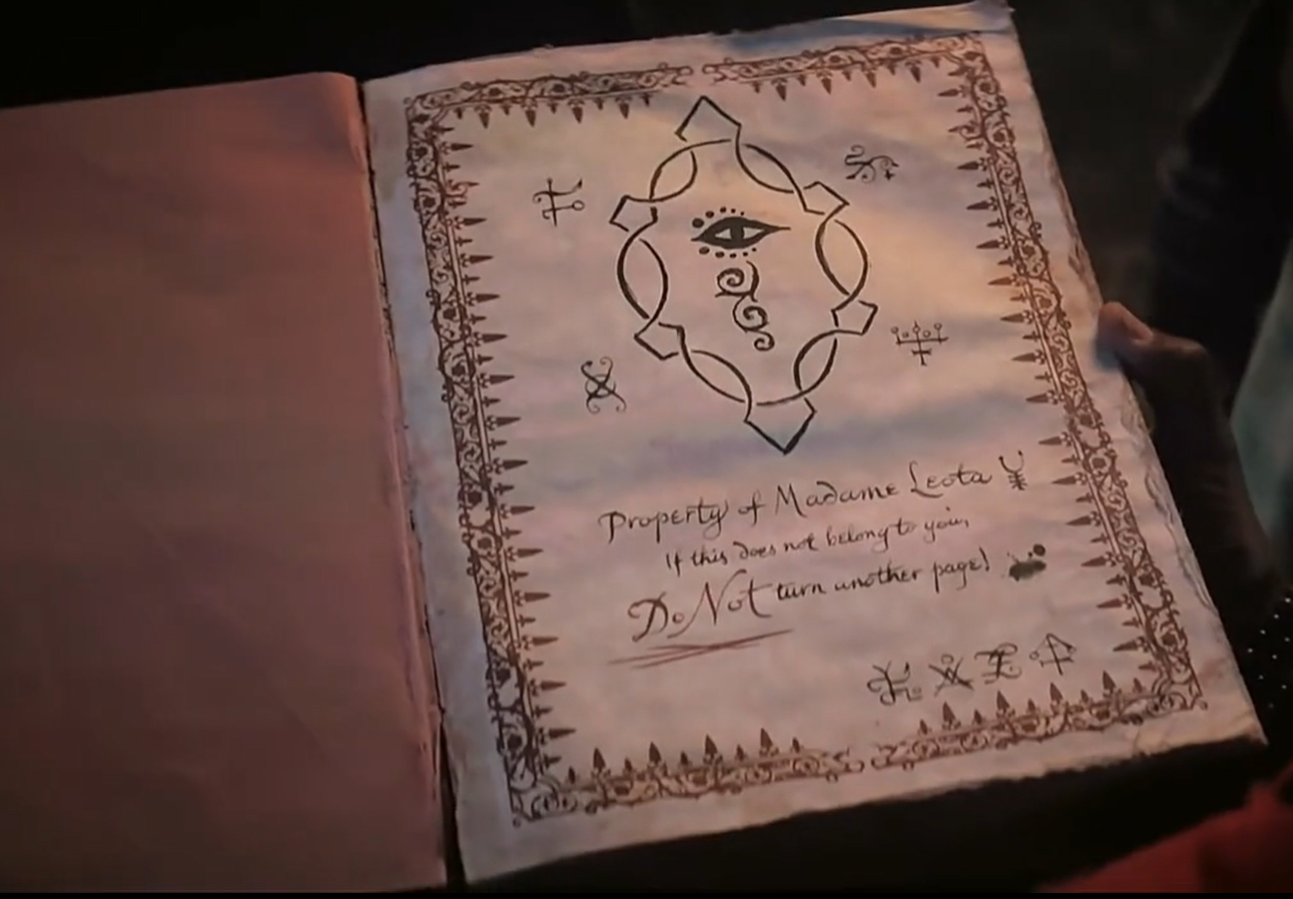 Property of Madame Leota
If this does not belong to you,
Do Not turn another page!